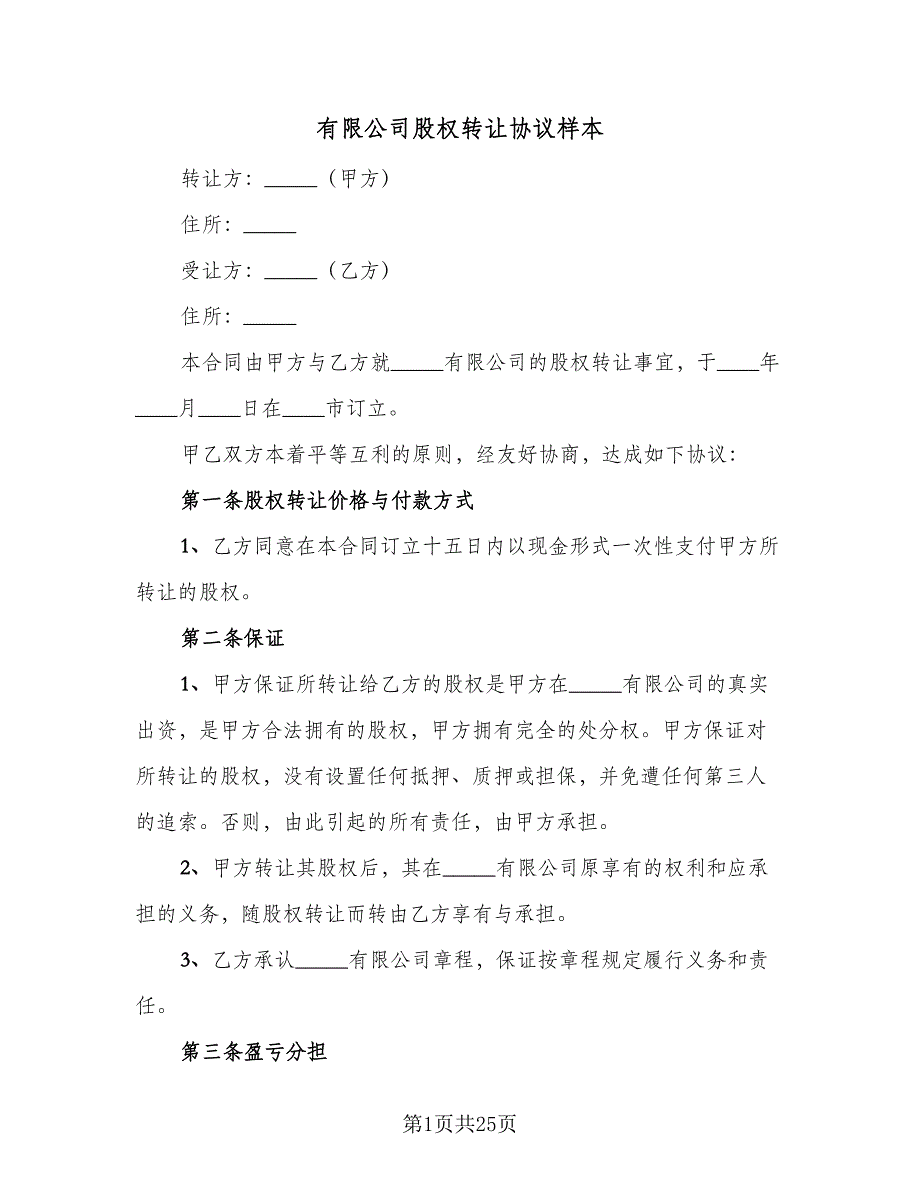 有限公司股权转让协议样本
转让方：_____（甲方）
住所：_____
受让方：_____（乙方）
住所：_____
本合同由甲方与乙方就_____有限公司的股权转让事宜，于____年
____月____日在____市订立。
甲乙双方本着平等互利的原则，经友好协商，达成如下协议：
第一条股权转让价格与付款方式
1、乙方同意在本合同订立十五日内以现金形式一次性支付甲方所
转让的股权。
第二条保证
1、甲方保证所转让给乙方的股权是甲方在_____有限公司的真实
出资，是甲方合法拥有的股权，甲方拥有完全的处分权。甲方保证对
所转让的股权，没有设置任何抵押、质押或担保，并免遭任何第三人
的追索。否则，由此引起的所有责任，由甲方承担。
2、甲方转让其股权后，其在_____有限公司原享有的权利和应承
担的义务，随股权转让而转由乙方享有与承担。
3、乙方承认_____有限公司章程，保证按章程规定履行义务和责
任。
第三条盈亏分担
第1页共25页